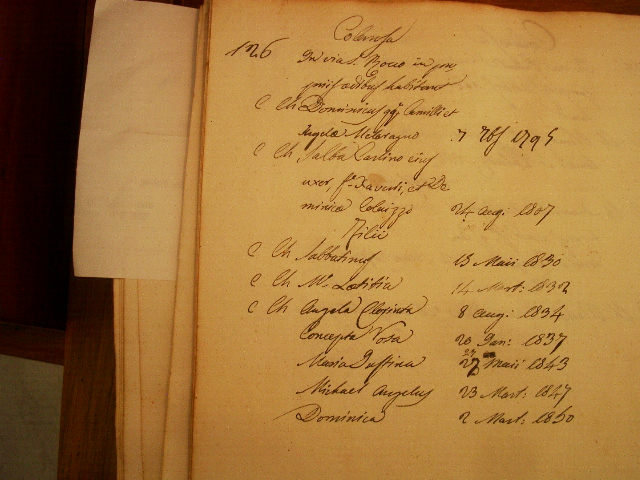 126
In via S. Rocco in
habitant
C Ch Dominicus qm Camilli et
Angela Melaragno 7 7bs 1795
C Ch Salba Carlino ejus
uxor, fa Xaverii, et Do
minica Colaizzo 24 Aug: 1807
Filii
C Ch Sabbatinus 13 Maii 1830
C Ch Ma Laetitia 14 Mart: 1832
C Ch Angela Clorinta 8 Aug: 1834
Concepta Rosa 20 Jan: 1837
Maria Maii 1843
Michael Angelus 23 Mart: 1847
Dominica 2 Mart: 1850